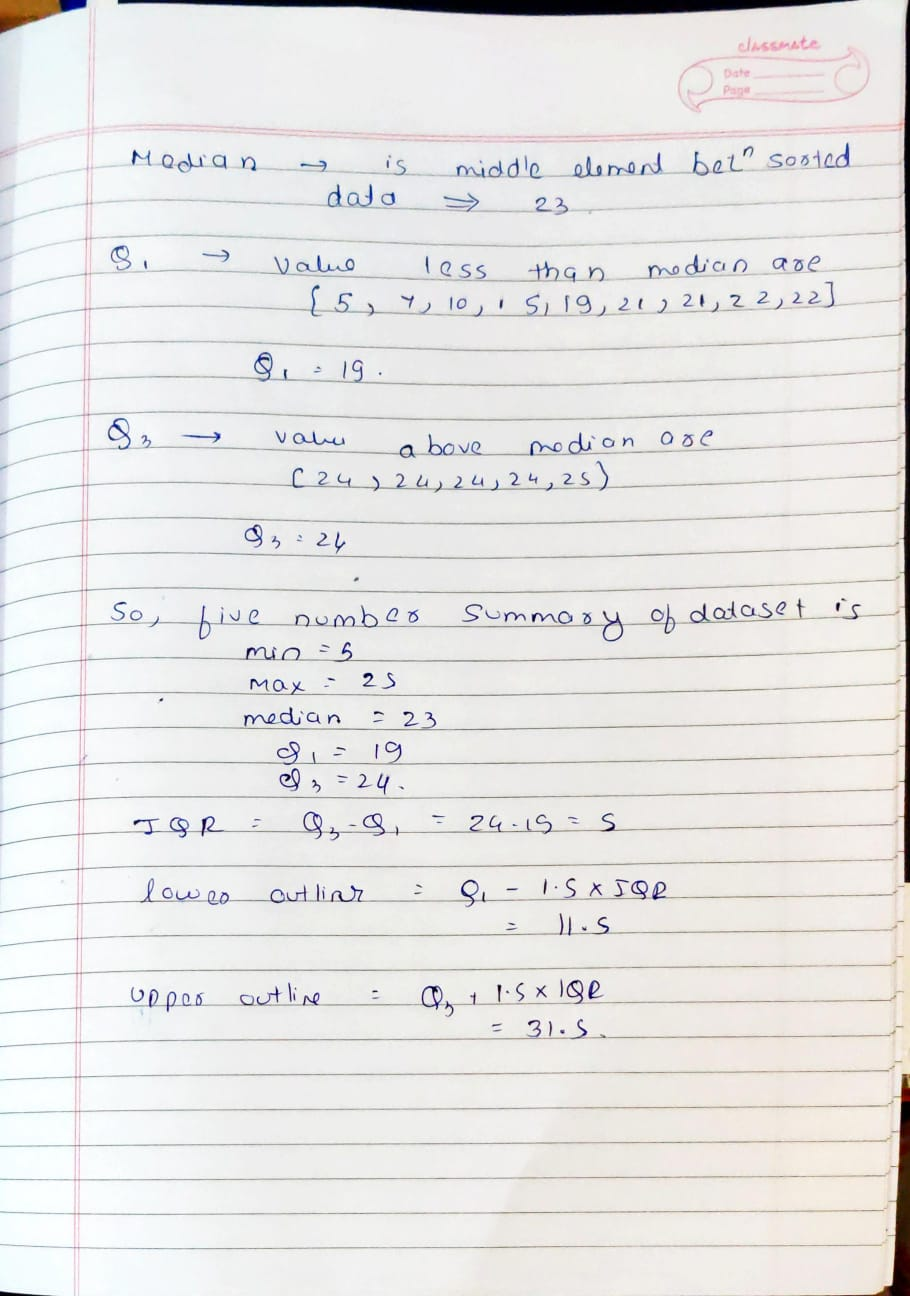 classmate
Date
Page
Median → is middle element betⁿ sorted
data ⇒ 23
Q₁ → value less than median are
{5, 7, 10, 15, 19, 21, 21, 22, 22}
Q₁ = 19.
Q₃ → value above median are
(24, 24, 24, 24, 25)
Q₃ = 24
So, five number summary of dataset is
min = 5
max = 25
median = 23
Q₁ = 19
Q₃ = 24.
IQR = Q₃-Q₁ = 24-19 = 5
lower outlier = Q₁ - 1.5 x IQR
= 11.5
upper outline = Q₃ + 1.5 x IQR
= 31.5.